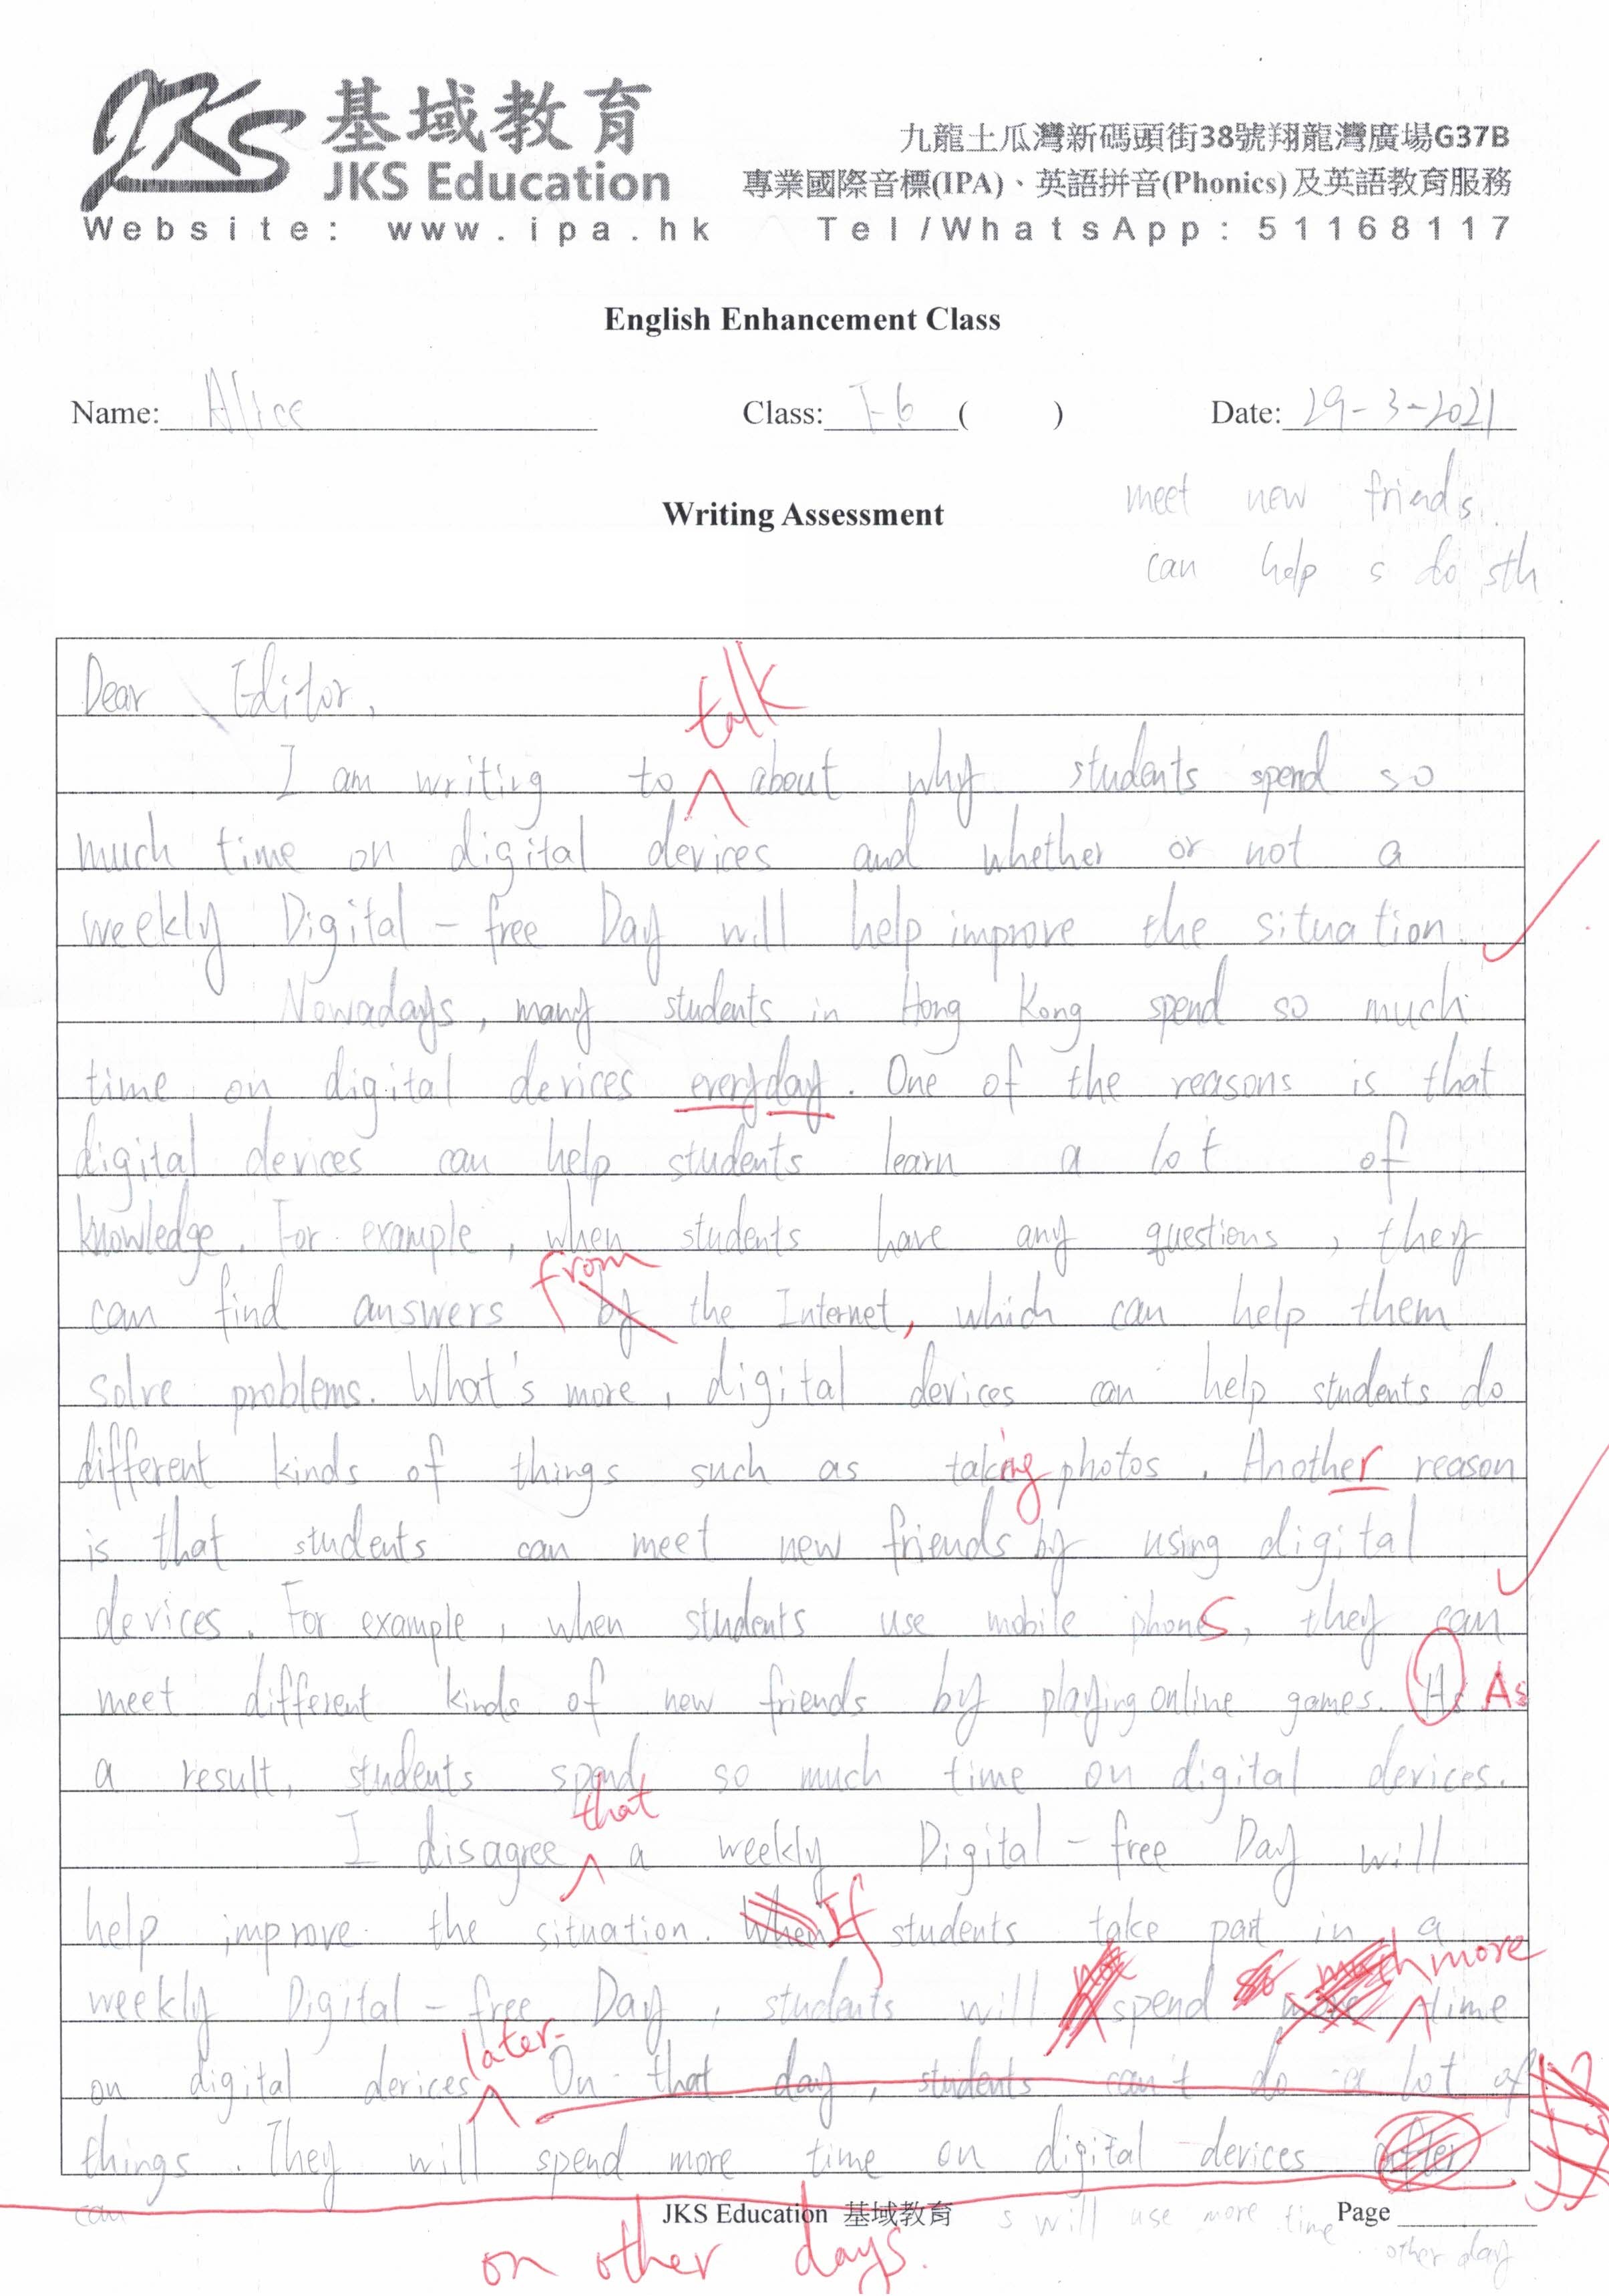 JKS 基域教育
JKS Education
九龍土瓜灣新碼頭街38號翔龍灣廣場G37B
專業國際音標(IPA)、英語拼音(Phonics)及英語教育服務
Website: www.ipa.hk Tel/WhatsApp: 51168117
English Enhancement Class
Name: Alice Class: ( ) Date: 29-3-2021
meet new friends.
Writing Assessment
can help s do sth
Dear Editor,
talk
I am writing to ^ about why students spend so
much time on digital devices and whether or not a
weekly Digital-free Day will help improve the situation.
Nowadays, many students in Hong Kong spend so much
time on digital devices everyday. One of the reasons is that
digital devices can help students learn a lot of
knowledge. For example, when students have any questions, they
from
can find answers by the Internet, which can help them
solve problems. What's more, digital devices can help students do
different kinds of things such as taking photos. Another reason
is that students can meet new friends by using digital
devices. For example, when students use mobile phones, they can
meet different kinds of new friends by playing online games. As As
a result, students spend so much time on digital devices.
that
I disagree ^ a weekly Digital-free Day will
help improve the situation. When If students take part in a
much more
weekly Digital-free Day, students will spend so more ^ time
later.
on digital devices ^ On that day, students can't do a lot of
things. They will spend more time on digital devices after
can JKS Education 基域教育 s will use more time Page
other day
on other days.